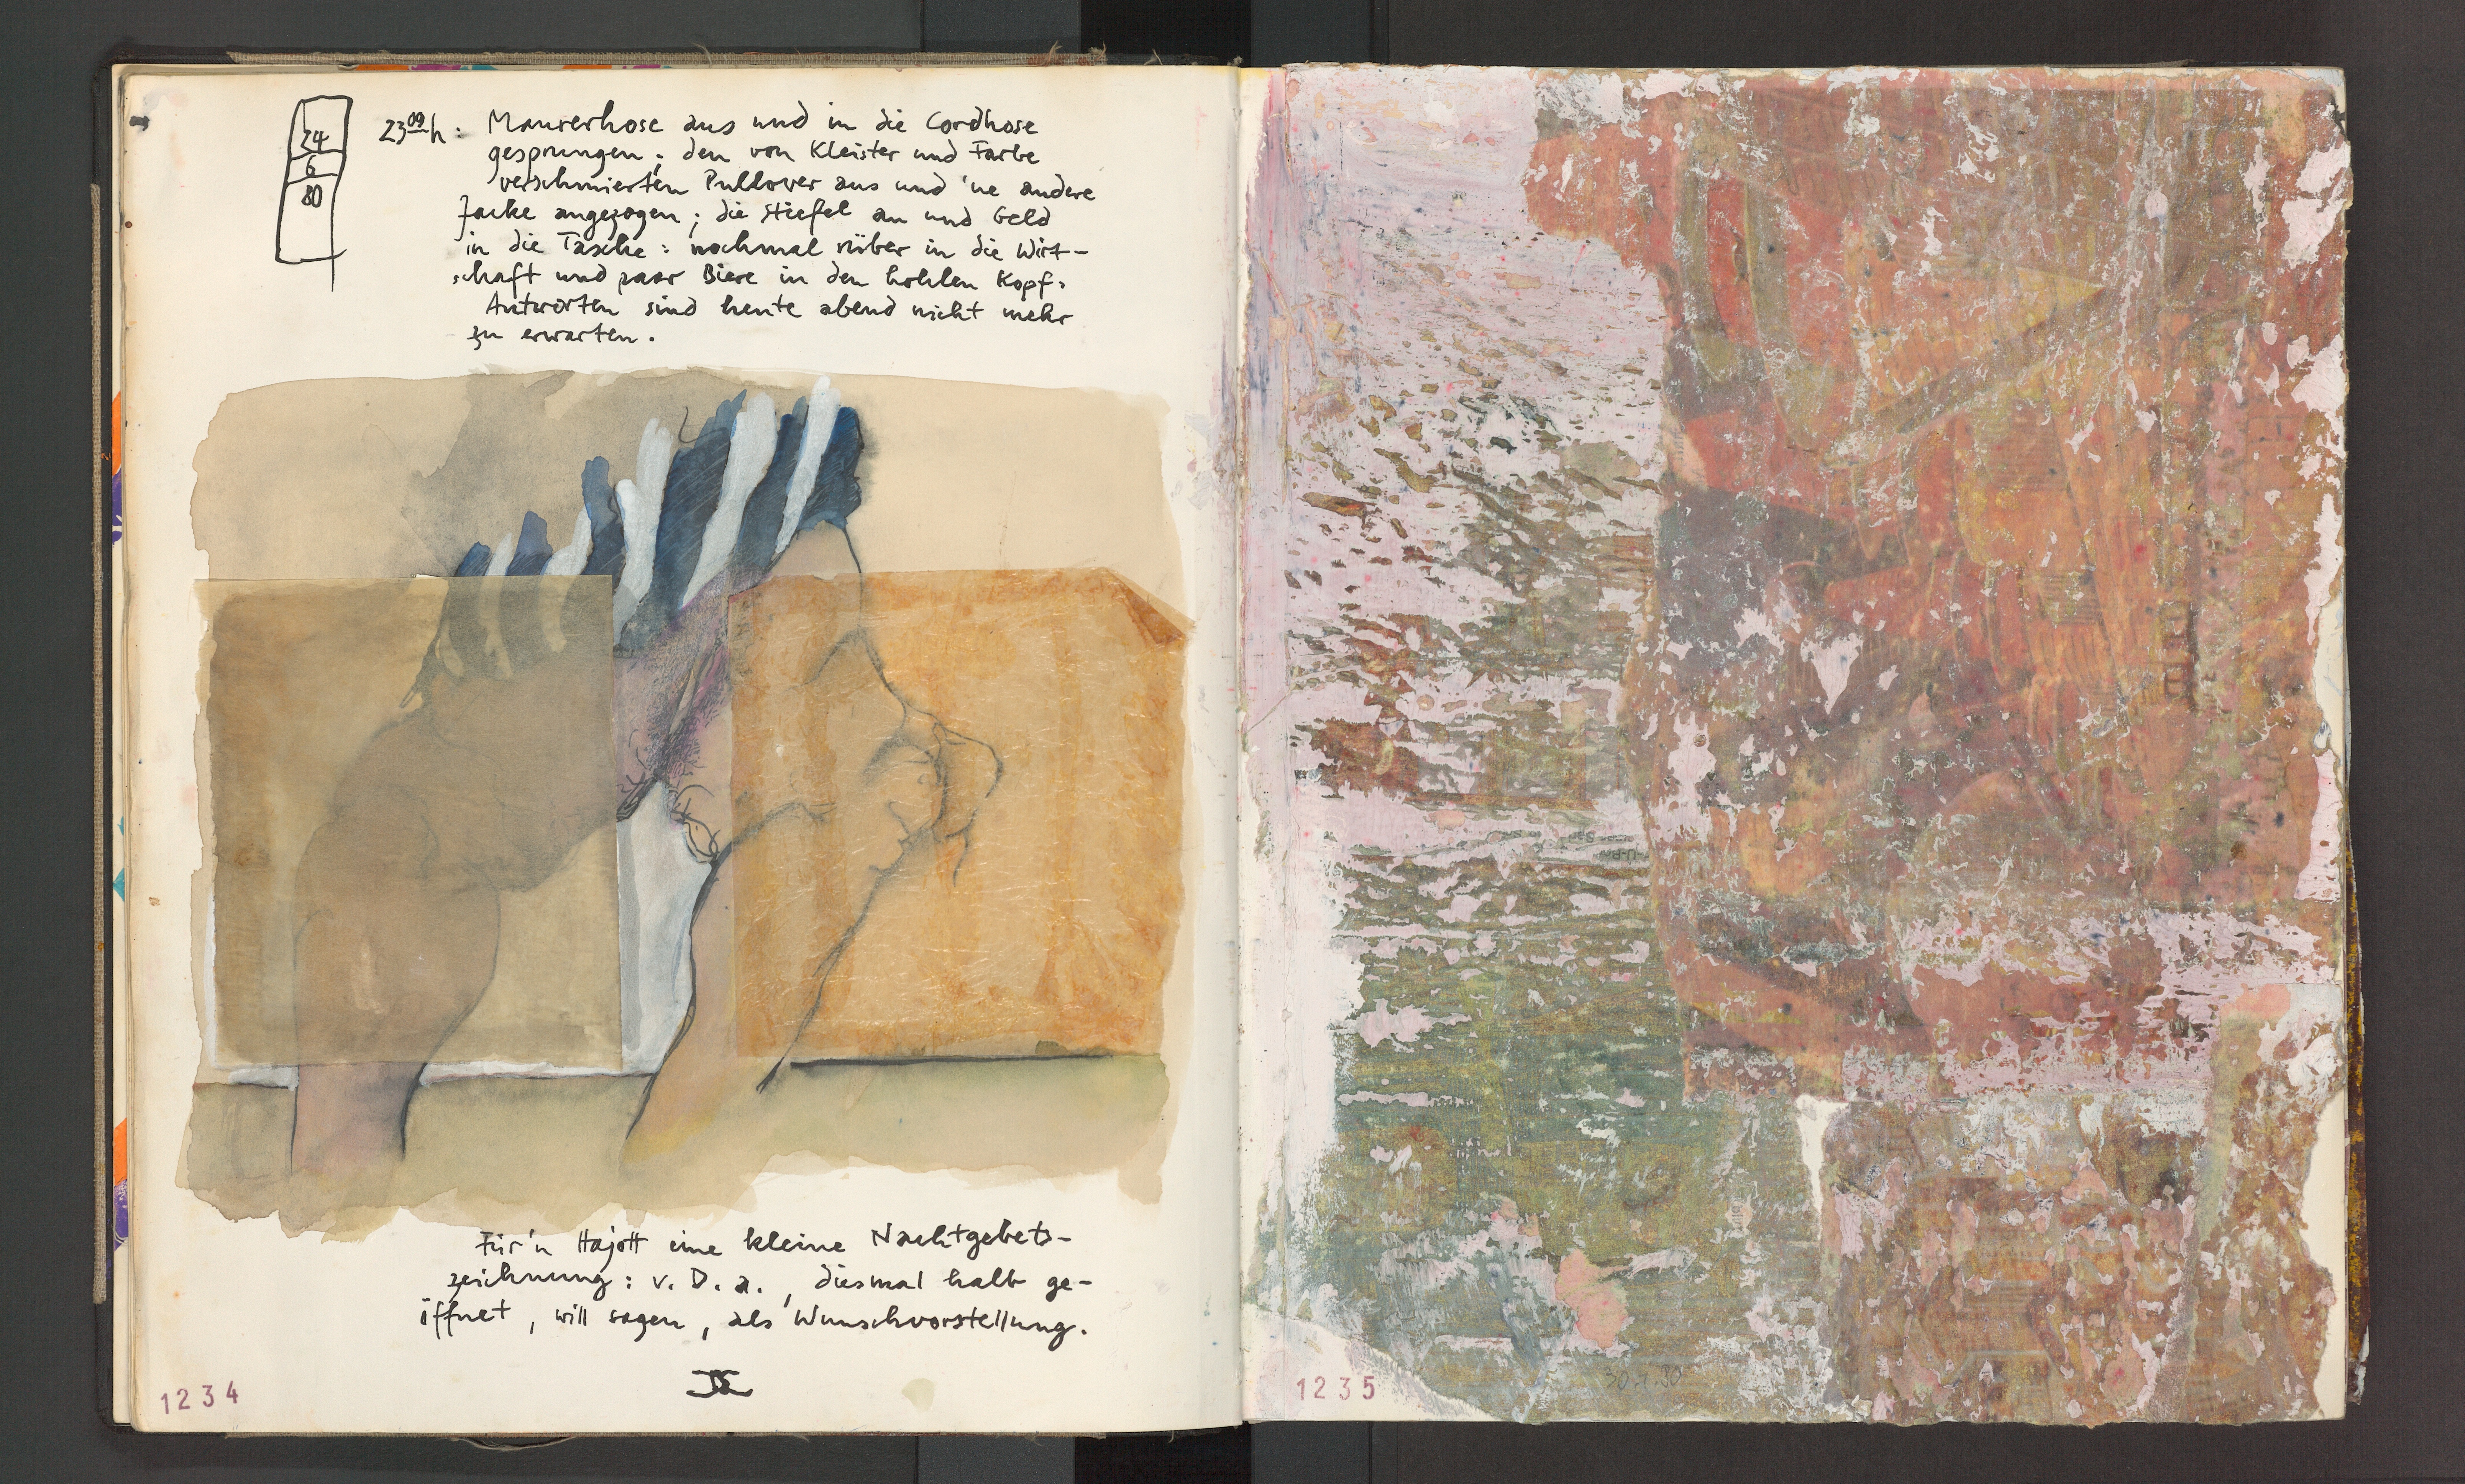 24
6
80
23 09 h : Maurerhose aus und in die Cordhose
gesprungen ; den von Kleister und Farbe
verschmierten Pullover aus und 'ne andere
Jacke angezogen ; die Stiefel an und Geld
in die Tasche : nochmal rüber in die Wirt-
schaft und paar Biere in den hohlen Kopf.
Antworten sind heute abend nicht mehr
zu erwarten .
Für'n Hajott eine kleine Nachtgebets-
zeichnung : v. D. a. , diesmal halb ge-
öffnet , will sagen , als Wunschvorstellung .
1234
1235